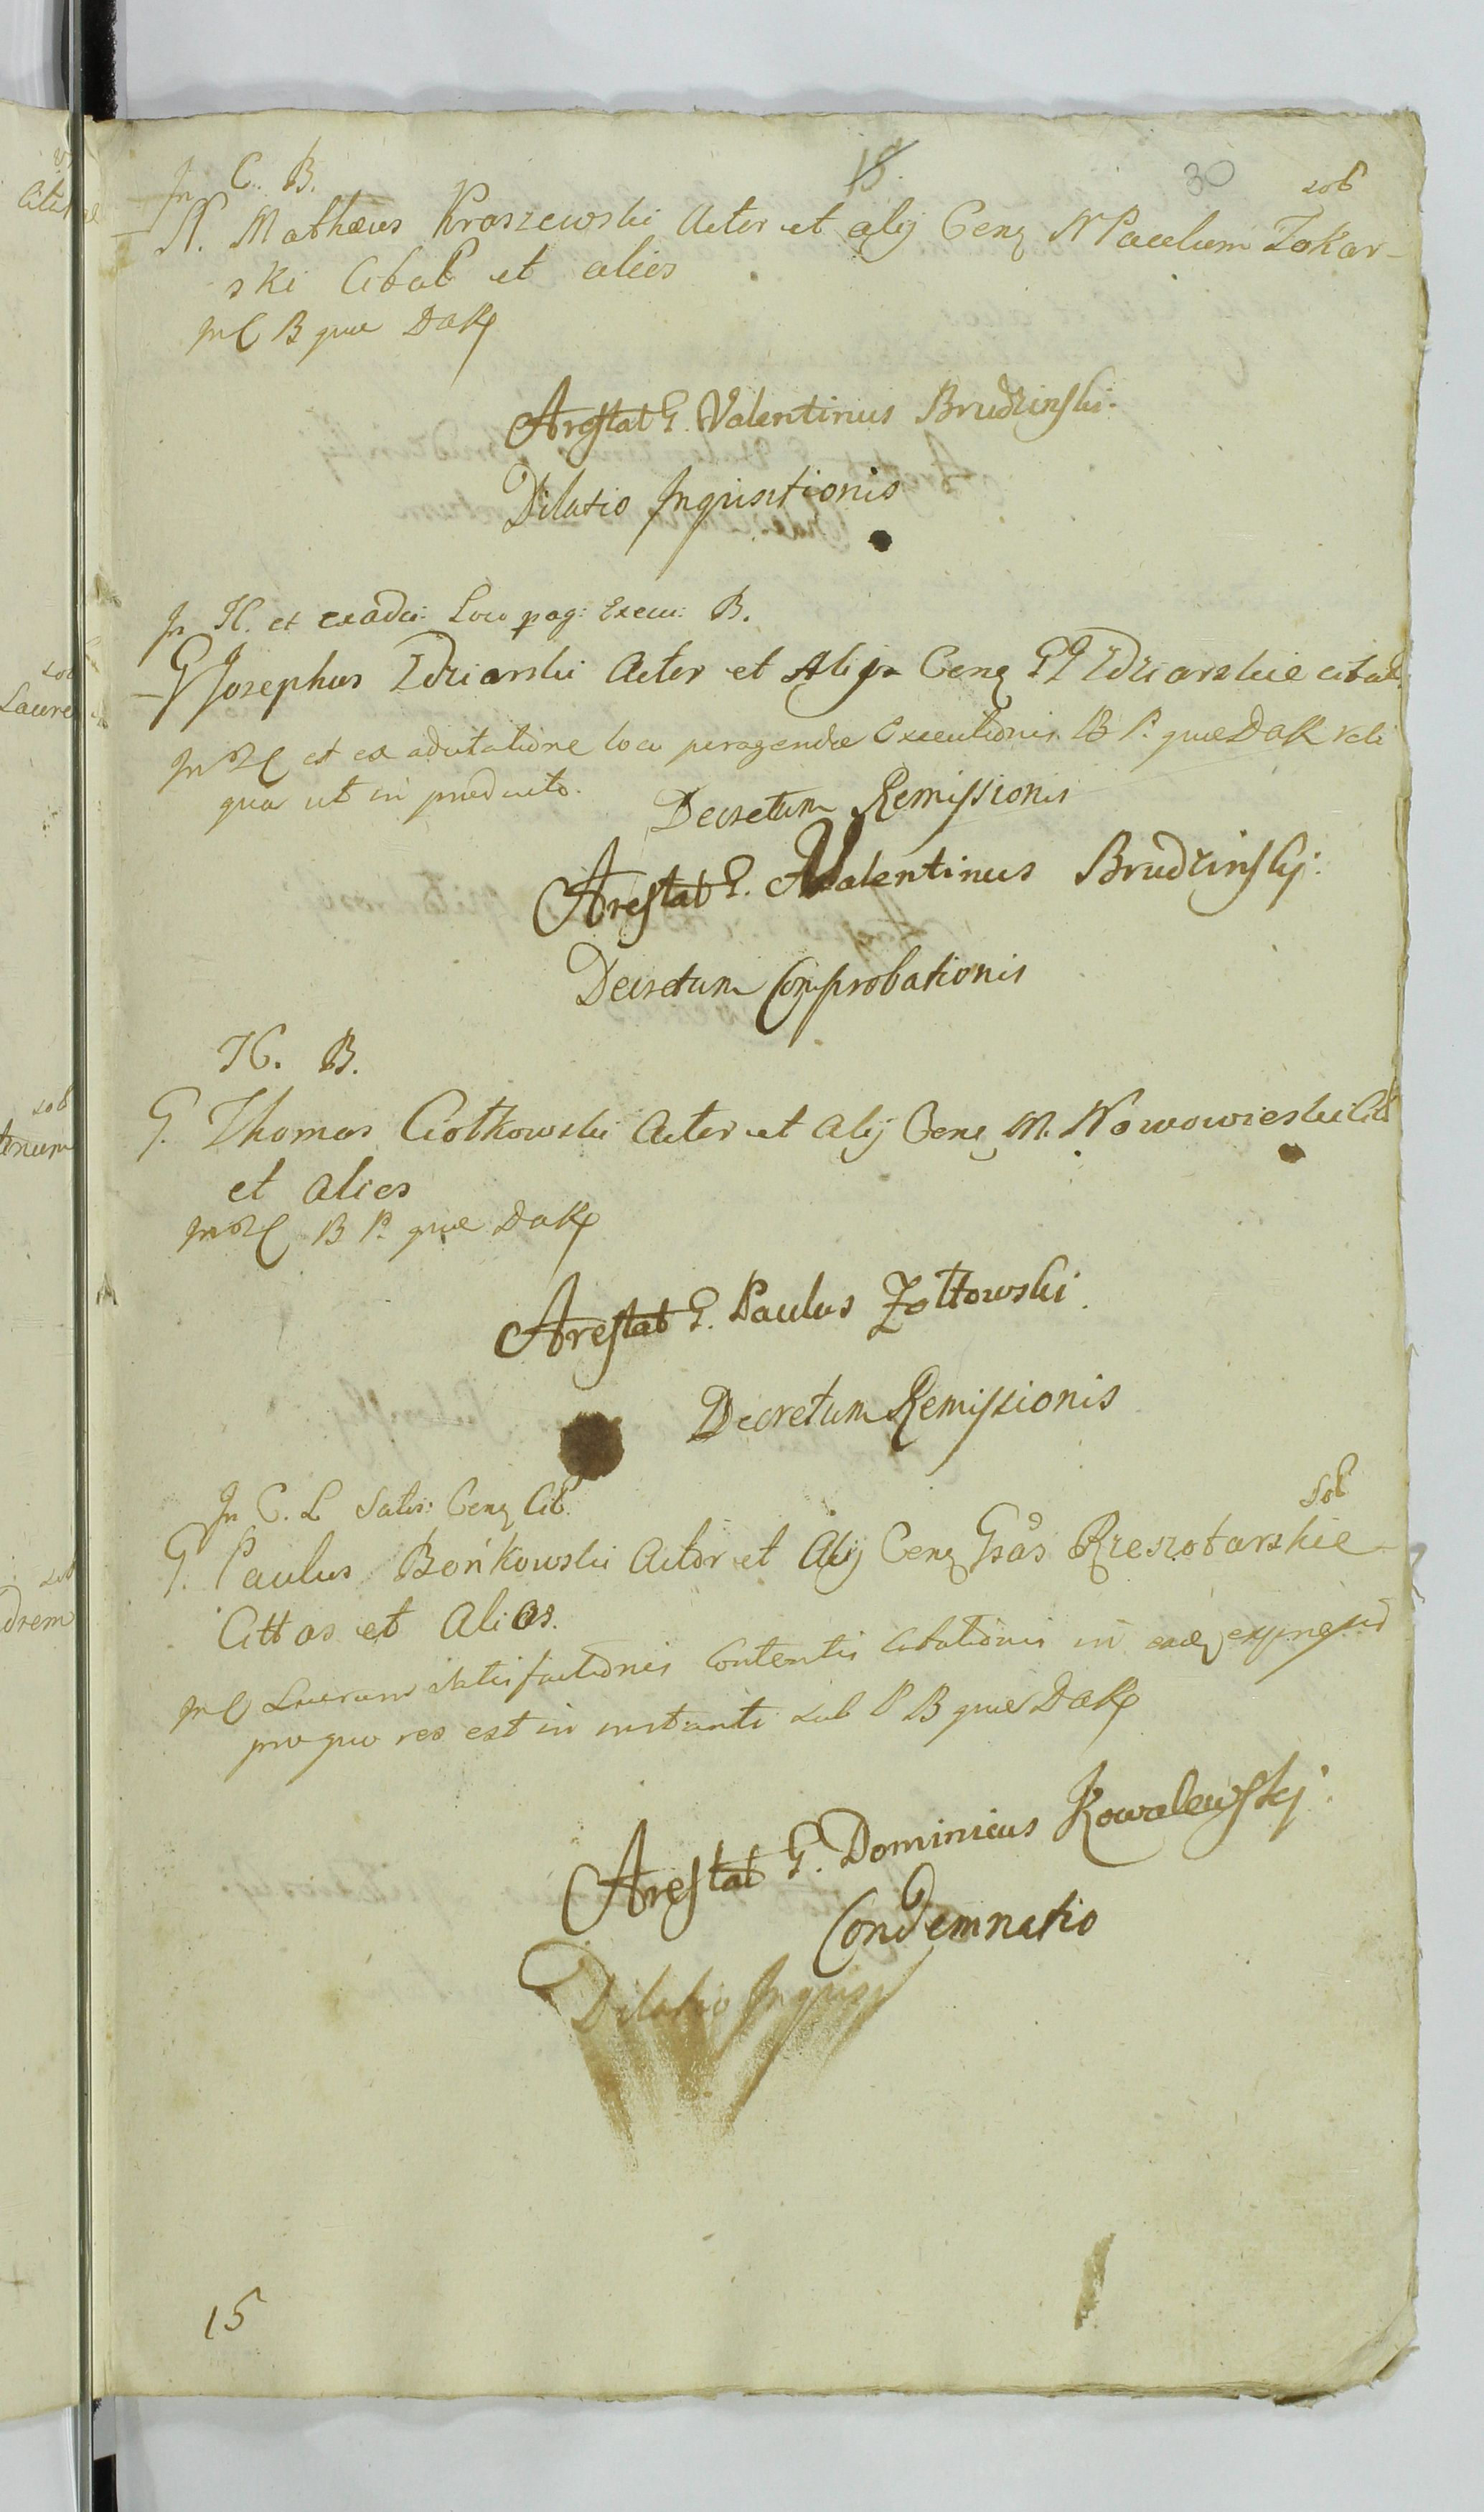 15. 30
In C. B. sob
N. Mathæus Kraszewski Actor et alij Cenq N Paulum Zokar-
ski Citat et alios
In C B que DaK
Arestat G. Valentinus Brudzinski.
Dilatio Inquisitionis
In H. et exadci: Loco pag: Execu: B.
G Josephus Zdziarski Actor et Alij Cenq GG Zdziarskie citat
et ex adcitatione loci peragendæ Executionis B P. que DaK reli
qua ut in producto.
Decretum Remissionis
Arestat G. Valentinus Brudzinskj:
Decretum Comprobationis
H. B.
G. Thomas Ciołkowski Actor et Alij Cenq M. Nowowieski Cit
et alios
B P. que DaK
Arestat G. Paulus Zołtowski.
Decretum Remissionis
In C. L Satis: Cenq Cit. sob
G. Paulus Bońkowski Actor et Alij Cenq Gsas Rzeszotarskie
Cittas et Alios.
In C Lucrum satisfactionis Contentis Citationis in eadq express
pro quo res est in instanti sub P B que DaK
Arestat G. Dominicus Kowalewskj.
Condemnatio
Dilatio Inquisi
15